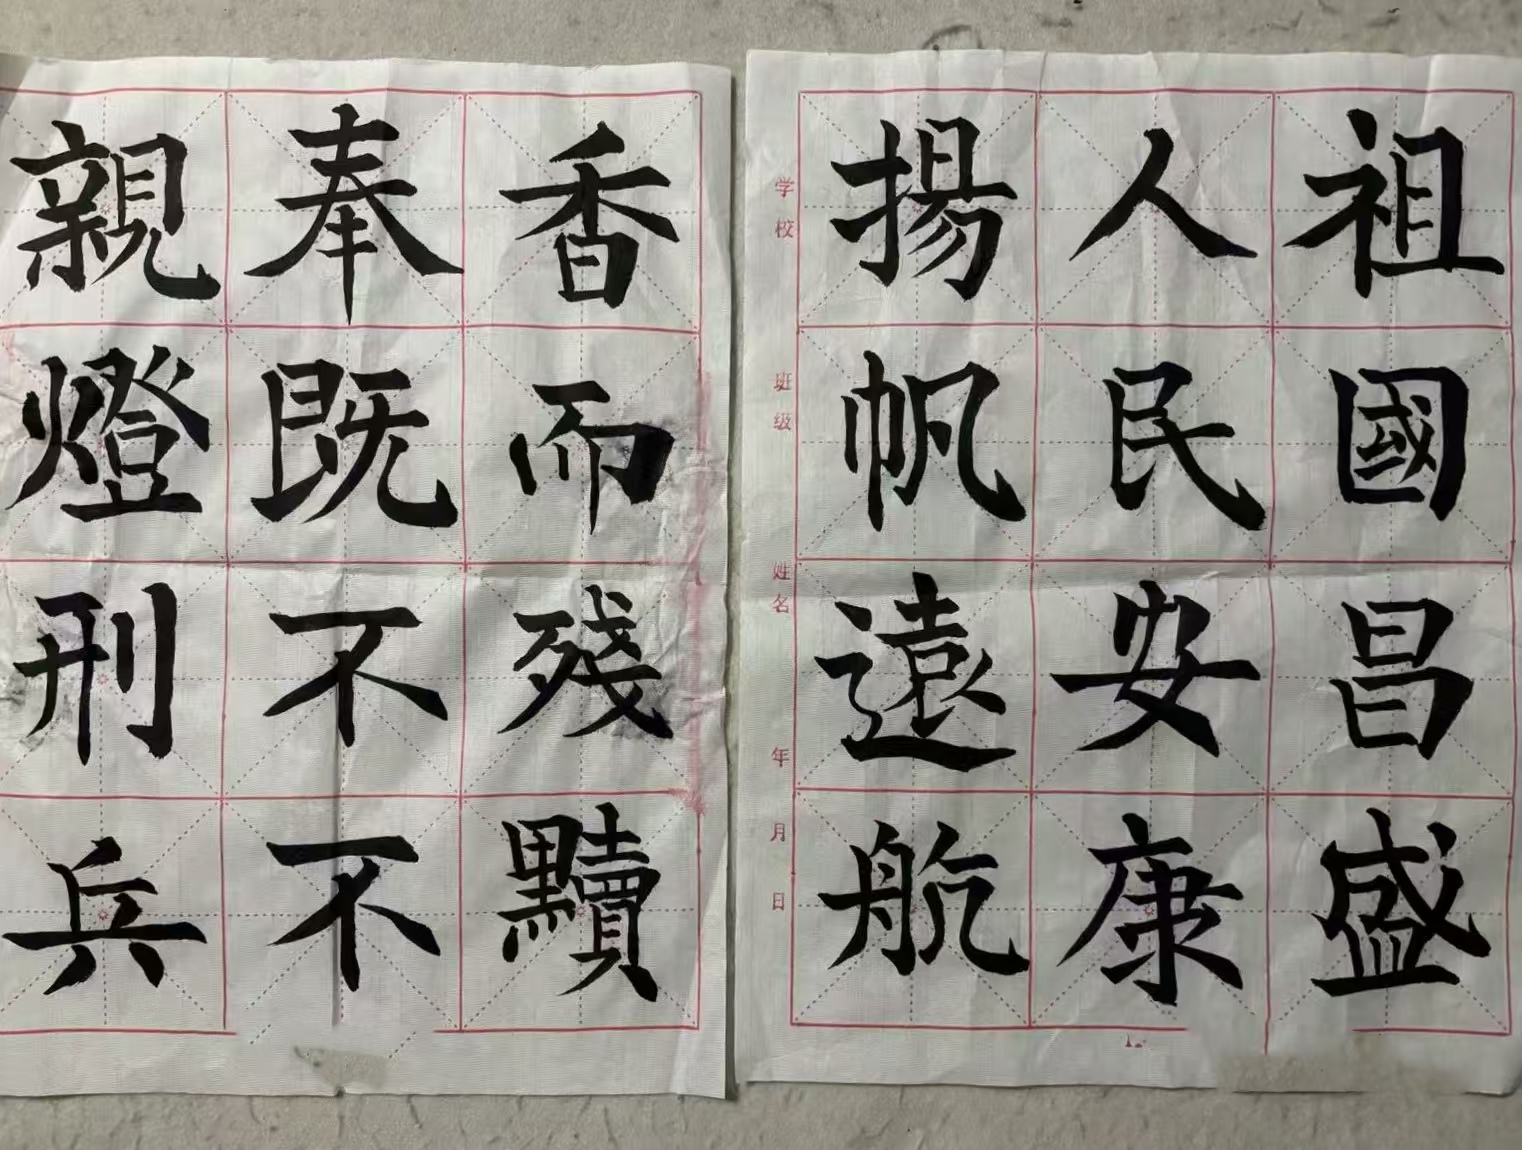 祖國昌盛
人民安康
揚帆遠航
学校 班级 姓名 年 月 日
香而殘黷
奉既不不
親燈刑兵